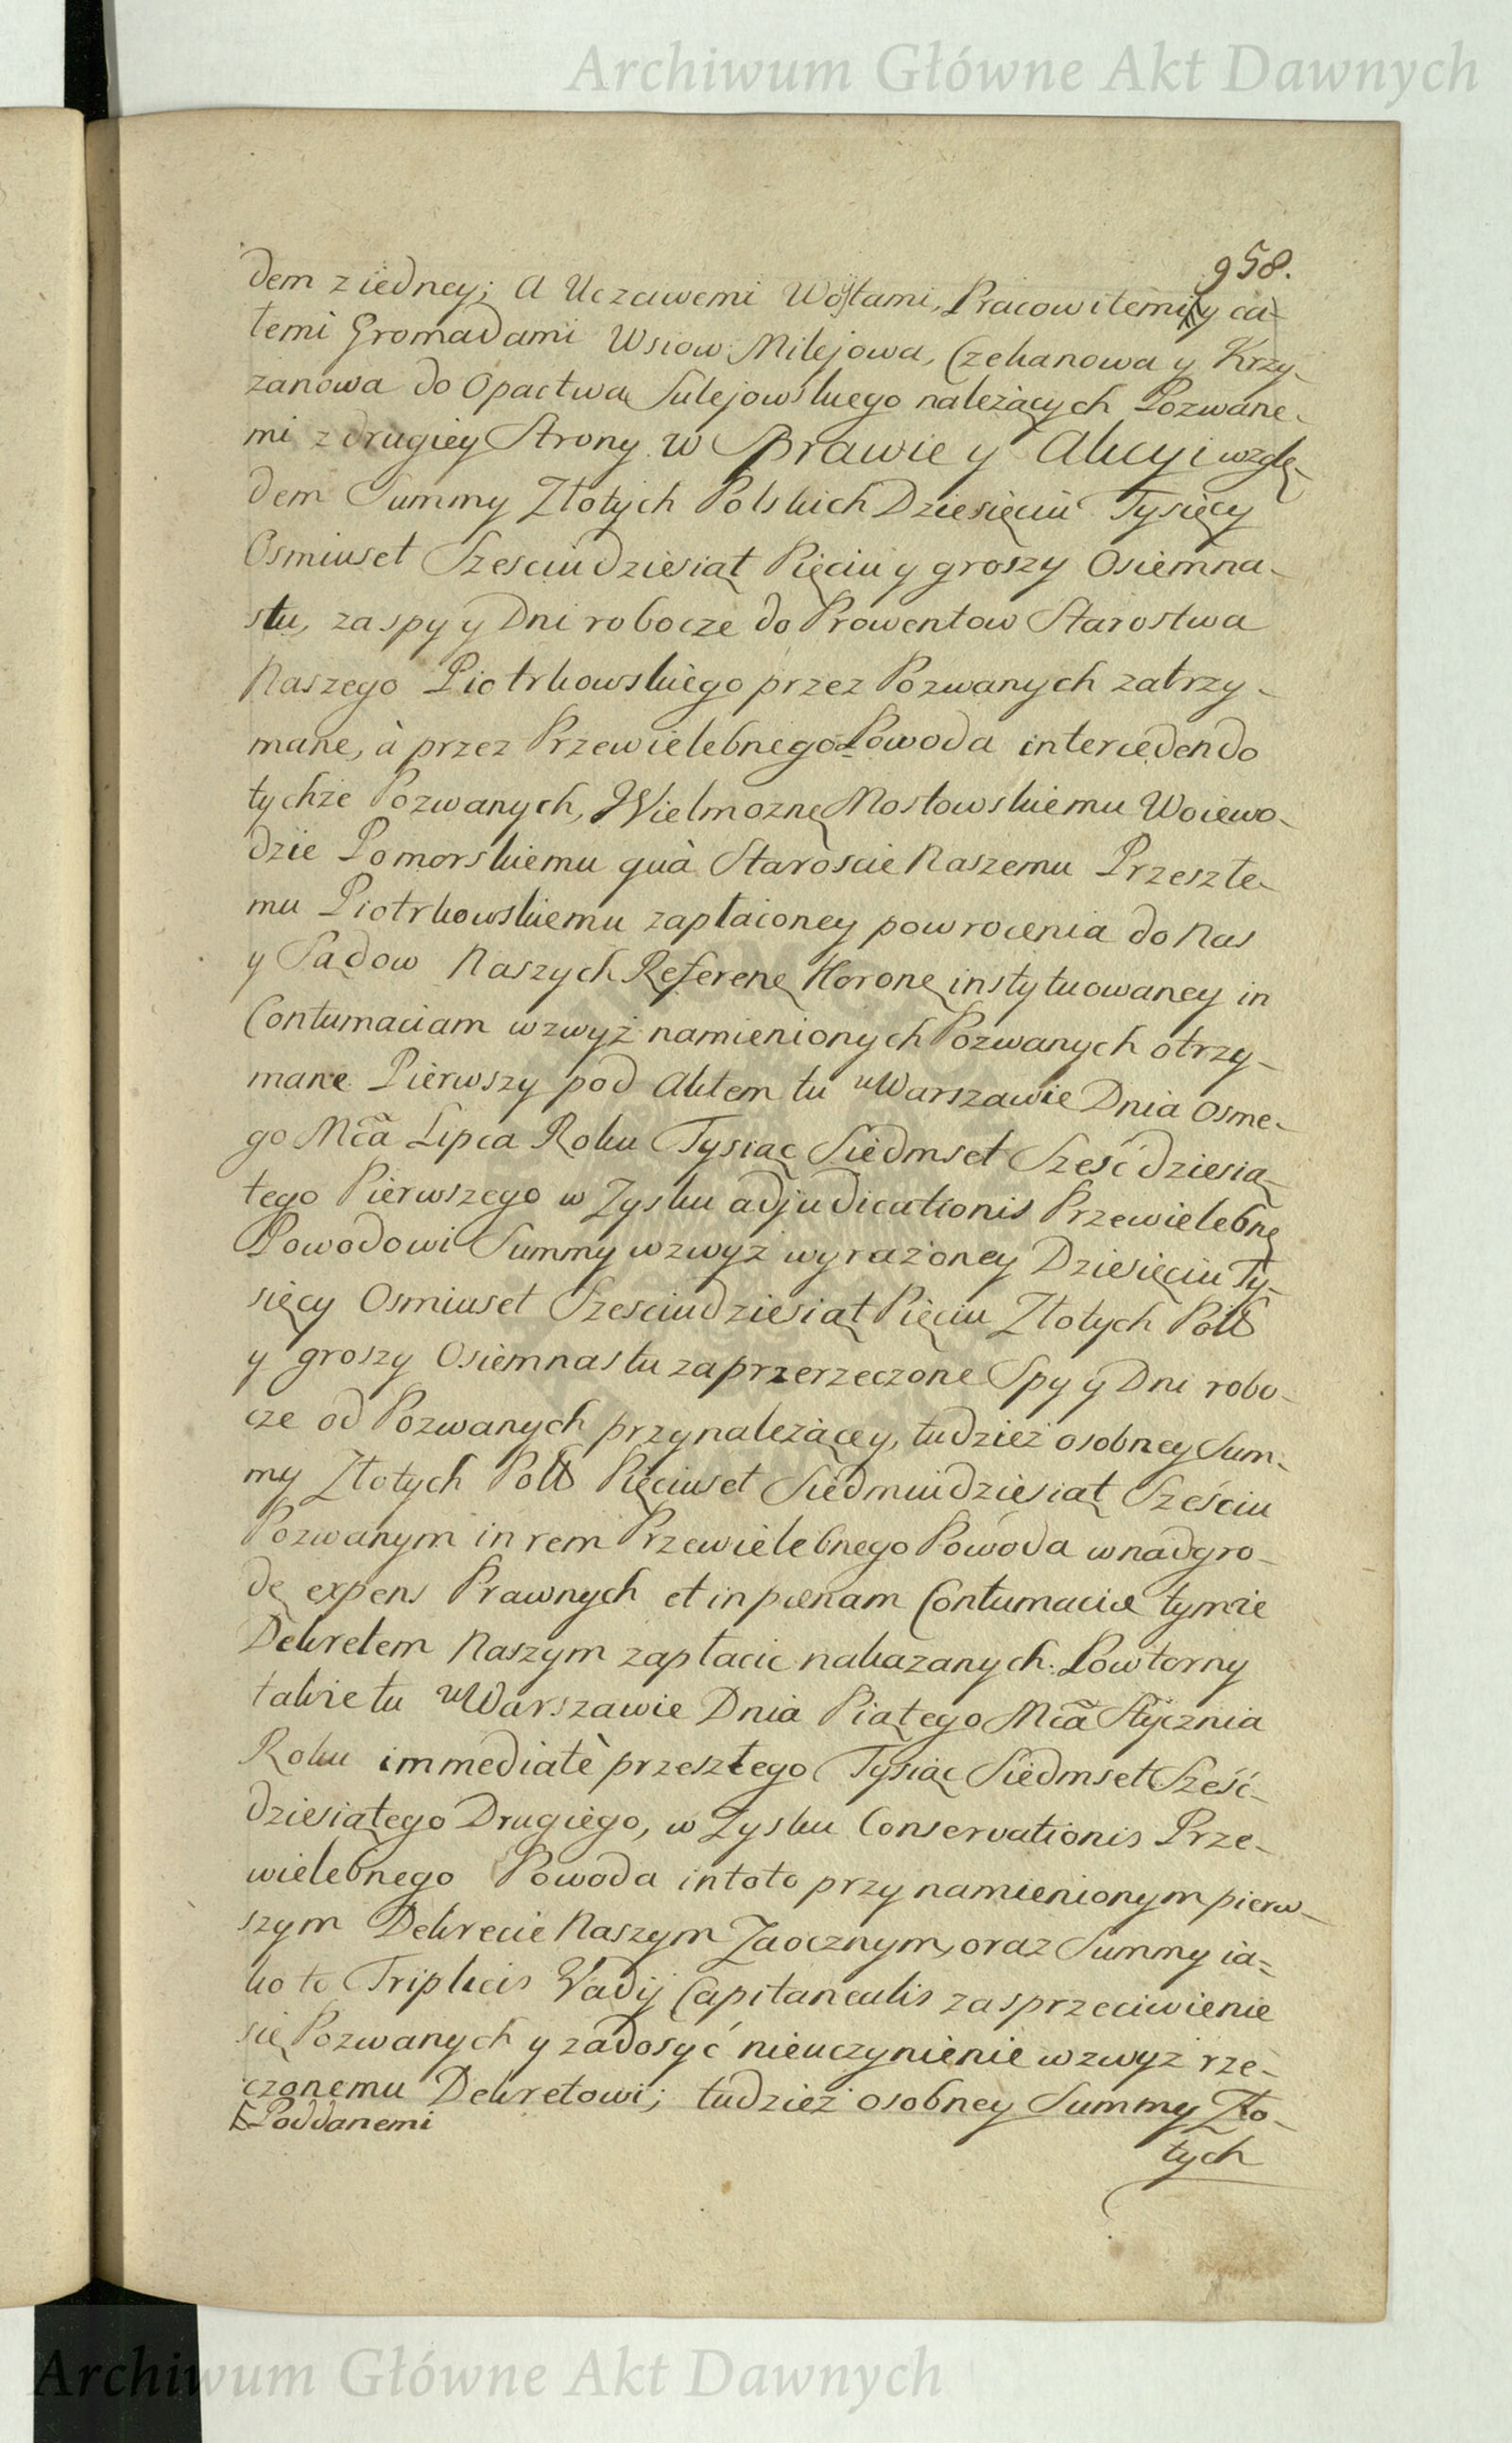 Archiwum Główne Akt Dawnych
958.
dem z iedney; A Uczciwemi Woytami, Pracowitemi y ca=
łemi Gromadami Wsiow Milejowa, Czekanowa y Krzy-
zanowa do Opactwa Sulejowskiego należących Pozwane-
mi z drugiey Strony w Sprawie y Akcyi wzglę-
dem Summy Złotych Polskich Dziesięciu Tysięcy
Osmiuset Szesciudziesiąt Pięciu y groszy Osiemna-
stu, za spy y Dni robocze do Prowentow Starostwa
Naszego Piotrkowskiego przez Pozwanych zatrzy-
mane, à przez Przewielebnego Powoda intercedendo
tychże Pozwanych, Wielmożnę Mostowskiemu Woiewo-
dzie Pomorskiemu quà Staroscie Naszemu Przeszłe-
mu Piotrkowskiemu zapłaconey powrocenia do Nas
y Sądow Naszych Referenę Koronę instytuowaney in
Contumaciam wzwyż namienionych Pozwanych otrzy-
mane Pierwszy pod Aktem tu w Warszawie Dnia Osme-
go Mca Lipca Roku Tysiąc Siedmset Sześćdziesią-
tego Pierwszego w Zysku adjudicationis Przewielebnę
Powodowi Summy wzwyż wyrażoney Dziesięciu Ty-
sięcy Osmiuset Szesciudziesiąt Pięciu Złotych Polls
y groszy Osiemnastu za przerzeczone Spy y Dni robo-
cze od Pozwanych przynależącey, tudzież osobney Sum-
my Złotych Polls Pięciuset Siedmiudziesiąt Sześciu
Pozwanym in rem Przewielebnego Powoda w nadgro-
dę expens Prawnych et in pœnam Contumaciæ tymże
Dekretem Naszym zapłacic nakazanych. Powtorny
takze tu w Warszawie Dnia Piątego Mca Stycznia
Roku immediatè przeszłego Tysiąc Siedmset Sześć-
dziesiątego Drugiego, w Zysku Conservationis Prze-
wielebnego Powoda in toto przy namienionym pierw-
szym Dekrecie Naszym Zaocznym, oraz Summy ia=
ko to Triplicis Vadij Capitanealis za sprzeciwienie
się Pozwanych y zadosyć nieuczynienie wzwyż rze-
czonemu Dekretowi; tudzież osobney Summy Zło-
Poddanemi
tych
Archiwum Główne Akt Dawnych